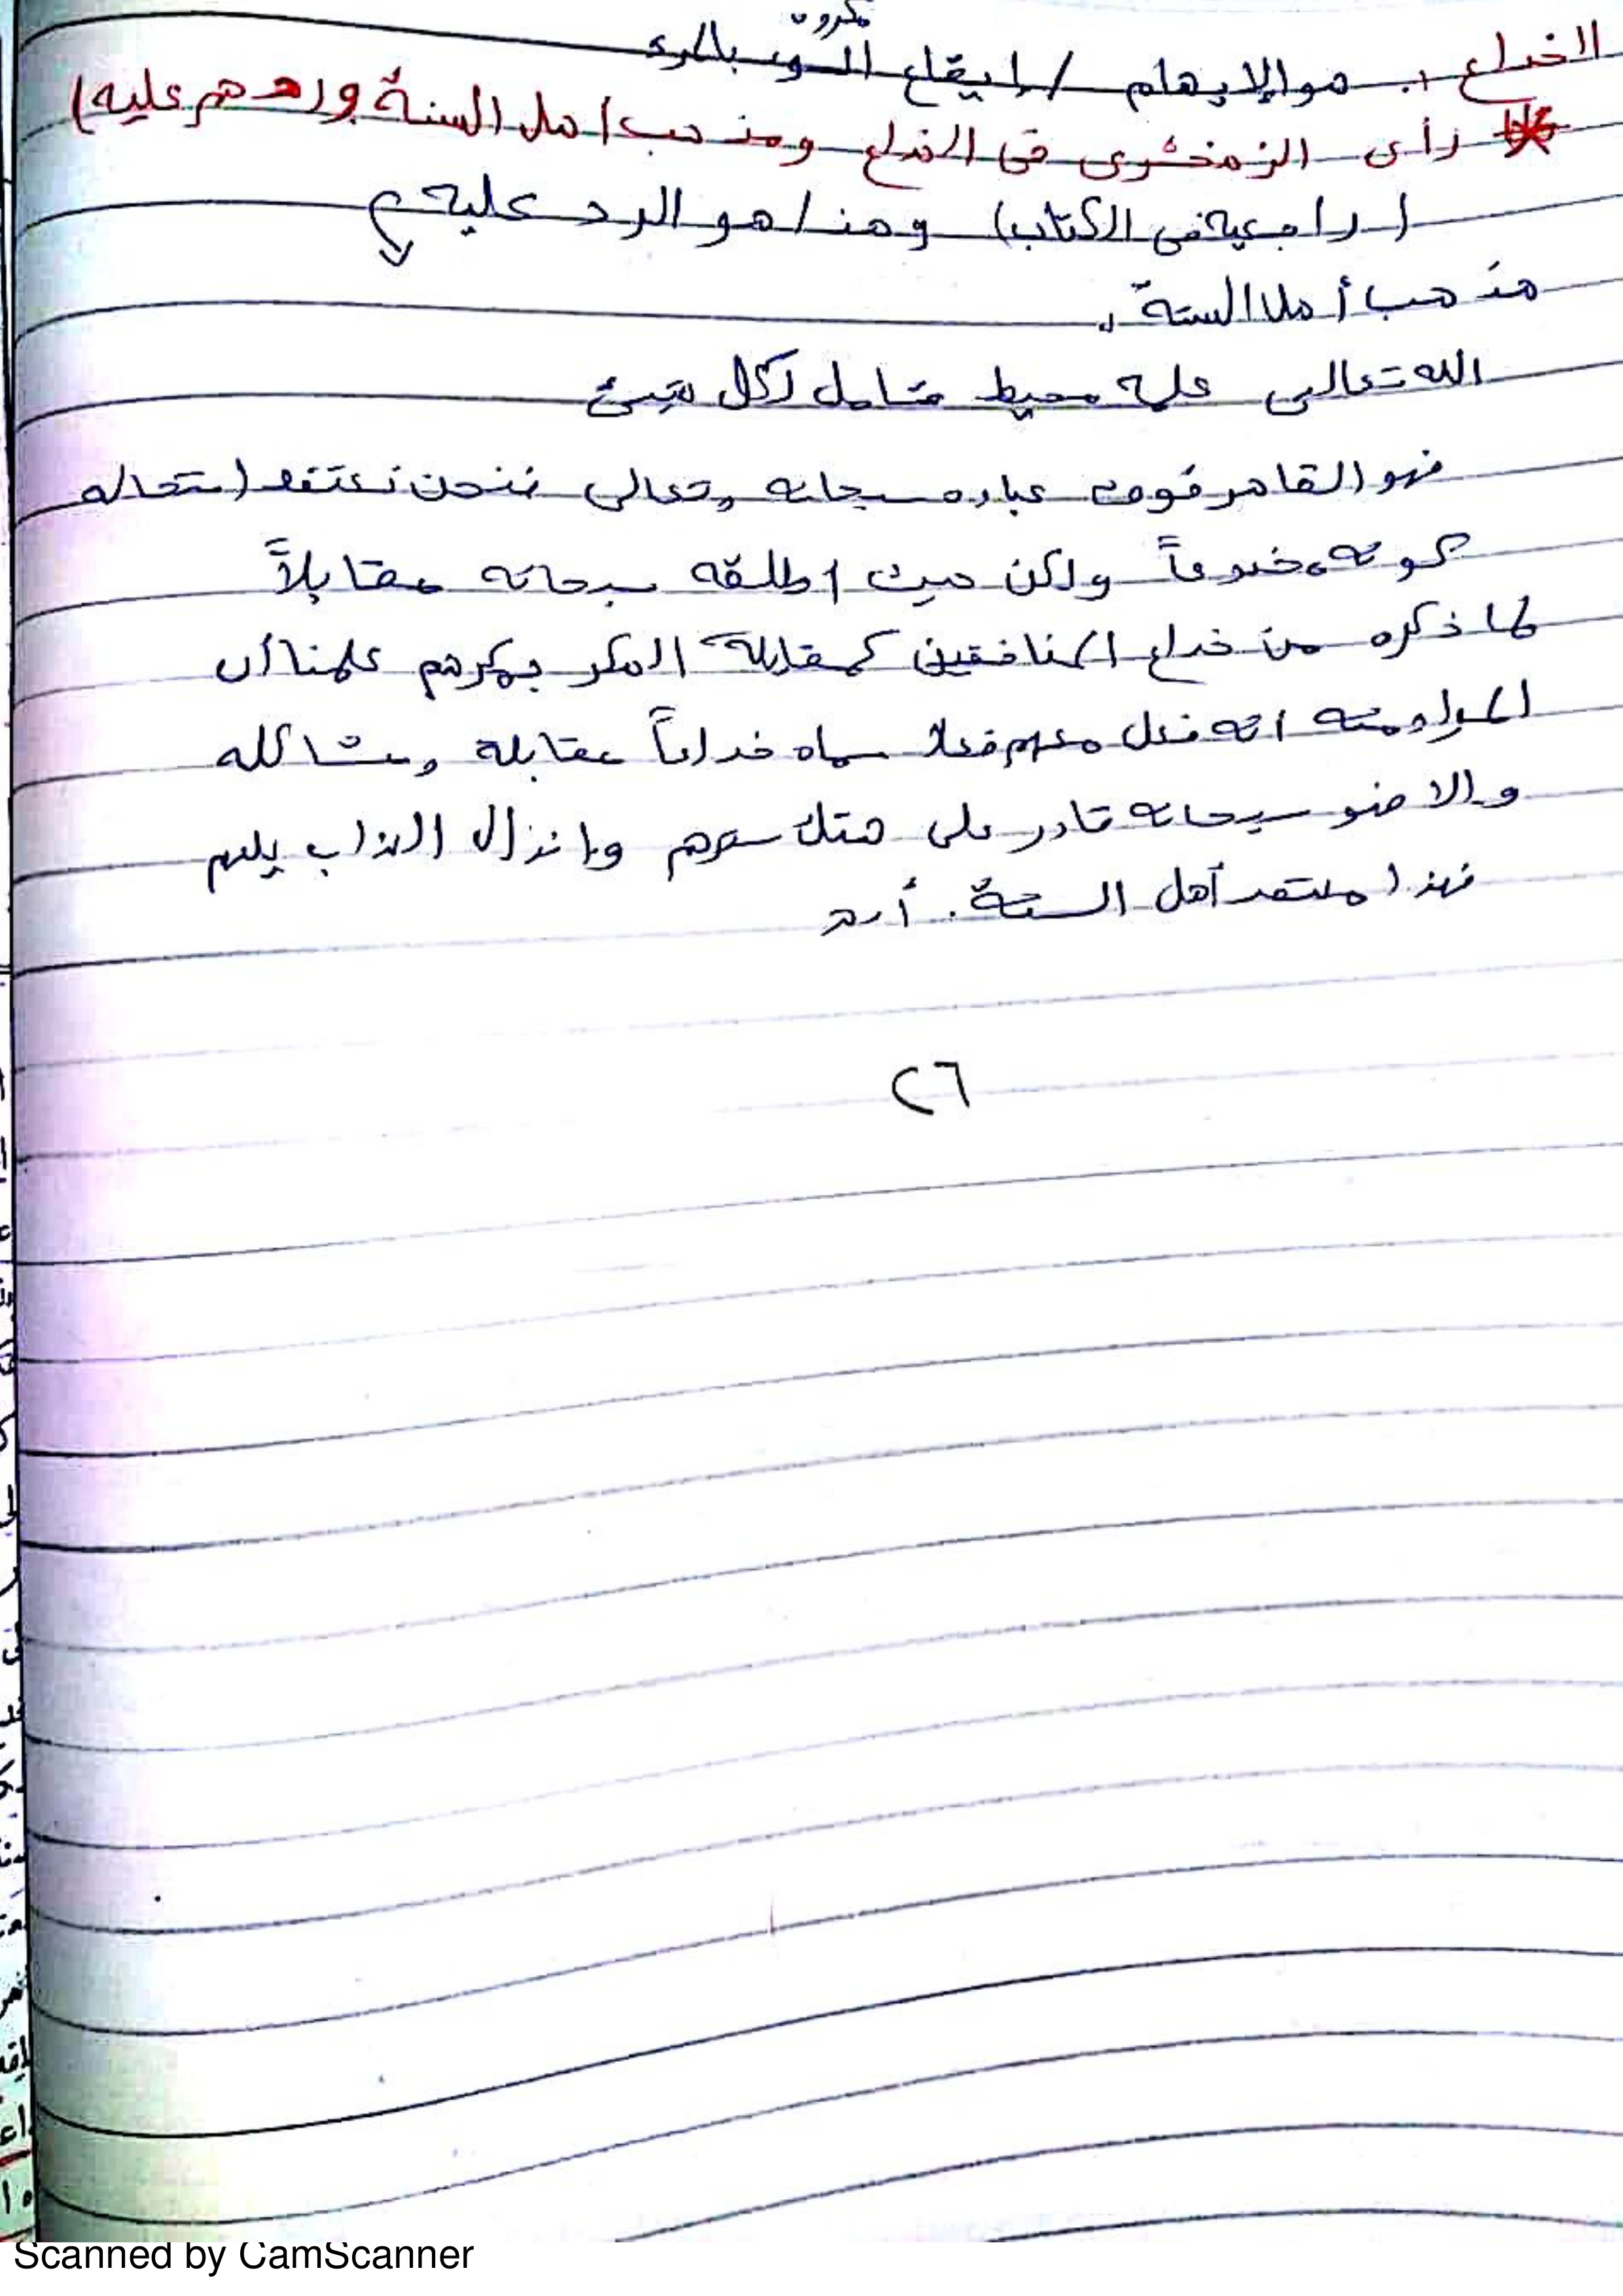 مكروه
الاخداع :. هو الإيهام / إيقاع السوء بالمرء
رأى الزمخشرى فى الخداع ومذهب اهل السنة وردهم عليه)
(راجعيه فى الكتاب) وهذا هو الرد عليه
مذهب أهل السنة:
الله تعالى علمه محيط شامل لكل شئ
فهو القاهر فوق عباده سبحانه وتعالى فنحن نعتقد استحاله
كونه مخدوعاً ولكن حيث اطلقه سبحانه مقابلاً
لما ذكره من خداع المنافقين كمقابلة المكر بمكرهم علمنا أن
المراد منه انه فعل معهم فعلا سماه خداعاً مقابلة ومشاكله
والا فهو سبحانه قادر على هتك سترهم وإنزال العذاب بهم
فهذا معتقد أهل السنة. أ.هـ
٢٦
Scanned by CamScanner